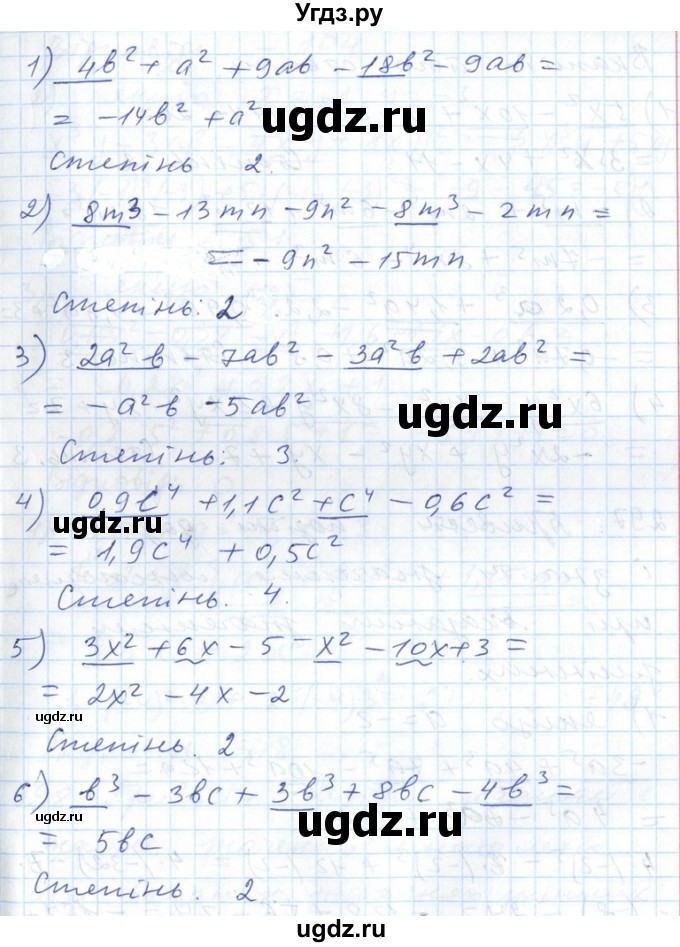 Угдз.ру
1) 4b² + a² + 9ab - 18b² - 9ab =
= -14b² + a²
ugdz.ru
Степінь 2.
2) 8m³ - 13mn - 9n² - 8m³ - 2mn =
= - 9n² - 15mn
ugdz.ru
Степінь: 2
3) 2a²b - 7ab² - 3a²b + 2ab² =
= -a²b - 5ab²
ugdz.ru
Степінь: 3.
4) 0,9c⁴ + 1,1c² + c⁴ - 0,6c² =
ugdz.ru
= 1,9c⁴ + 0,5c²
Степінь. 4.
5) 3x² + 6x - 5 - x² - 10x + 3 =
= 2x² - 4x - 2
ugdz.ru
ugdz.ru
Степінь. 2
6) b³ - 3bc + 3b³ + 8bc - 4b³ =
= 5bc
ugdz.ru
ugdz.ru
Степінь. 2.